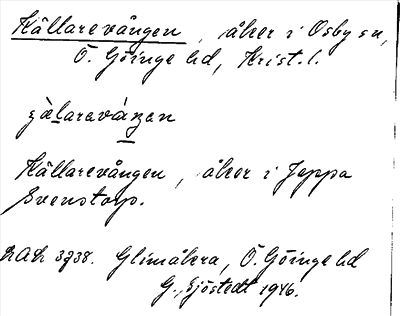 Källarevången, åker i Osby sn,
Ö. Göinge hd, Krist. l.
Källarevången, åker i Jeppa
Svenstorp.
3738. Glimåkra, Ö. Göinge hd
G. Sjöstedt 1946.